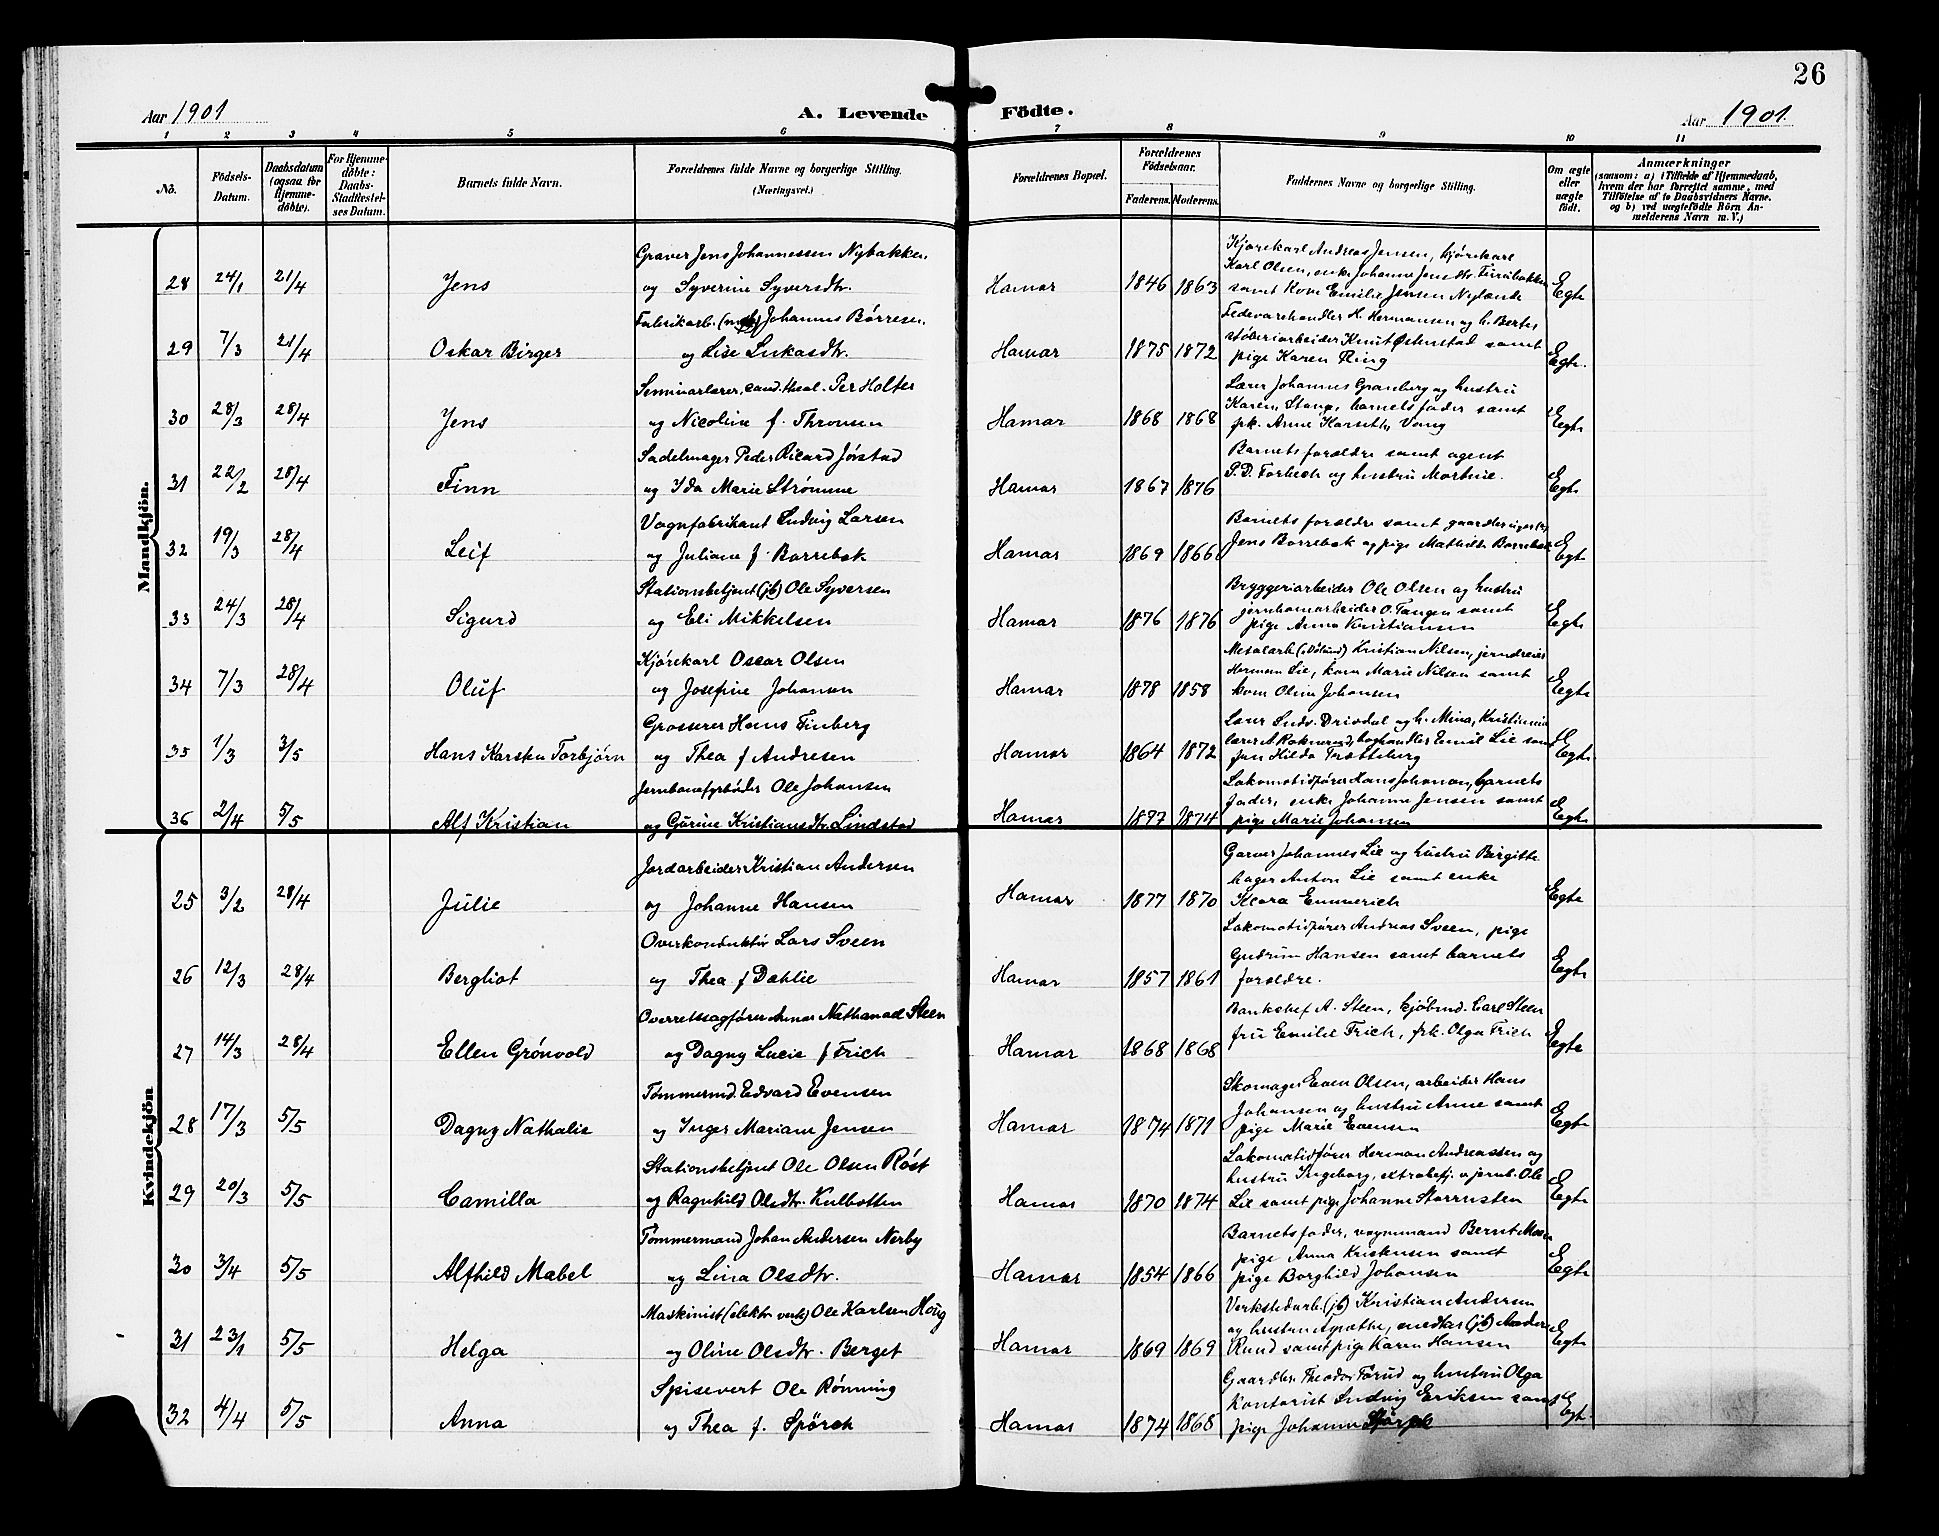 26
Aar 1901
A. Levende Födte.
Aar 1901.
1 2 3 4 5 6 7 8 9 10 11
No.
Födsels-Datum.
Daabsdatum (ogsaa for Hjemmedöbte).
For Hjemmedöbte: Daabs-Stadfæstelses Datum.
Barnets fulde Navn.
Forældrenes fulde Navne og borgerlige Stilling. (Næringsvei.)
Forældrenes Bopæl.
Forældrenes Födselsaar.
Faderens. Moderens.
Faddernes Navne og borgerlige Stilling.
Om ægte eller uægte födt.
Anmærkninger
(saasom: a) i Tilfælde af Hjemmedaab, hvem der har forrettet samme, med Tilföielse af to Daabsvidners Navne. og b) ved uægtefödte Börn Anmelderens Navn m. V.)
Mandkjön.
28 24/1 21/4 Jens Graver Jens Johannessen Nybakken og Syverine Syversdtr. Hamar 1846 1863 Kjørekarl Andreas Jensen, kjørekarl Karl Olsen, enke Johanne Jensdtr. samt Kone Emilie Jensen Egte
29 7/3 21/4 Oskar Birger Fabrikarb. Johannes Børresen og Lise Lukasdtr. Hamar 1875 1872 Fedevarehandler H. Hermansen og h. Berte, støberiarbeider Knut Østenstad samt pige Karen Ring Egte.
30 28/3 28/4 Jens Seminarlærer, cand. theol. Per Holter og Nicoline f. Thronsen Hamar 1868 1868 Lærer Johannes Granberg og hustru Karen, Stange, barnets fader samt frk. Anne Karseth, Vang Egte
31 22/2 28/4 Finn Sadelmager Peder Ricard Jørstad og Ida Marie Strømme Hamar 1867 1876 Barnets forældre samt agent P.D. Forbech og hustru Martine. Egte
32 19/3 28/4 Leif Vognfabrikant Ludvig Larsen og Juliane f. Borrebæk Hamar 1869 1866 Barnets forældre samt Jens Borrebæk og pige Mathilde Borrebæk Egte
33 24/3 28/4 Sigurd Stationsbetjent (jb) Ole Syversen og Eli Mikkelsen Hamar 1876 1876 Bryggeriarbeider Ole Olsen og hustru jernbanearbeider O. Tangen samt pige Anna Kristiansen Egte
34 7/3 28/4 Oluf Kjørekarl Oscar Olsen og Josefine Johansen Hamar 1878 1858 Kristian Nilsen, jerndreier Herman Lie, kone Marie Nilsen samt kone Oline Johansen Egte
35 1/3 3/5 Hans Karsten Torbjørn Grosserer Hans Finberg og Thea f Andresen Hamar 1864 1872 Lærer Ludv. Drivdal og h. Mina, Kristiania lærer A. boghandler Emil Lie samt frk Hilda Trætteberg Egte
36 2/4 5/5 Alf Kristian Jernbanefyrbøder Ole Johansen og Gurine Kristiansdtr. Lindstad Hamar 1877 1874 Lokomotivfører Hans Johansen, barnets fader, enke Johanne Jensen samt pige Marie Johansen Egte
Kvindekjön
25 3/2 28/4 Julie Jordarbeider Kristian Andersen og Johanne Hansen Hamar 1877 1870 Garver Johannes Lie og hustru Birgitte bager Anton Lie samt enke Klara Emmerich Egte
26 12/3 28/4 Bergliot Overkonduktør Lars Sveen og Thea f Dahlie Hamar 1857 1861 Lokomotivfører Andreas Sveen, pige Gudrun Hansen samt barnets forældre. Egte
27 14/3 28/4 Ellen Grönvold Overretssagfører Nathanael Steen og Dagny Lucie f Frich Hamar 1868 1868 Bankchef A. Steen, kjøbmd. Carl Steen fru Emilie Frich, frk. Olga Frich Egte
28 17/3 5/5 Dagny Nathalie Tømmermd. Edvard Evensen og Inger Mariane Jensen Hamar 1874 1871 Skomager Even Olsen, arbeider Hans Johansen og hustru Anne samt pige Marie Evensen Egte
29 20/3 5/5 Camilla Stationsbetjent Ole Olsen Røst og Ragnhild Olsdtr. Kulbotten Hamar 1870 1874 Lokomotivfører Herman Andreassen og hustru Ingeborg, extrabetj. v. jernb. Ole Lie samt pige Johanne Egte
30 3/4 5/5 Alfhild Mabel Tømmermand Johan Andersen Nerby og Lina Olsdtr. Hamar 1854 1866 Barnets fader, vognmand Bernt Moen pige Anna Kristensen samt pige Borghild Johansen Egte
31 23/1 5/5 Helga Maskinist (elektr. verk) Ole Karlsen Høug og Oline Olsdtr. Berget Hamar 1869 1869 Verkstedarb. (jb) Kristian Andersen og hustru Agathe, Rund samt pige Karen Hansen Egte
32 4/4 5/5 Anna Spisevert Ole Rønning og Thea f. Spörck Hamar 1874 1868 Gaardbr. Theodor Forud og hustru Olga Kontorist Ludvig Eriksen samt pige Johanne Egte